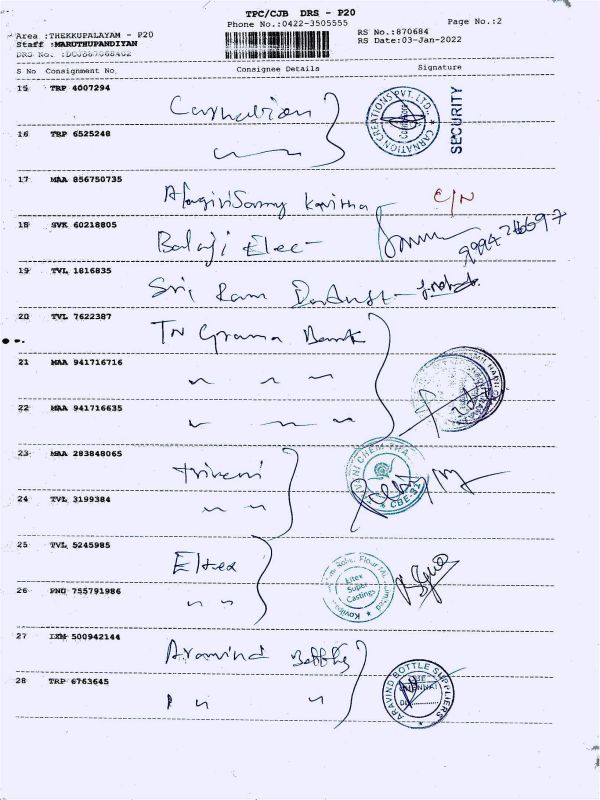 TPC/CJB DRS - P20
Phone No.:0422-3505555
Page No.:2
Area :THEKKUPALAYAM - P20
RS No.:870684
Staff :MARUTHUPANDIYAN
RS Date:03-Jan-2022
S No Consignment No Consignee Details Signature
15 TRP 4007294
Carnation
CARNATION CREATIONS PVT.LTD.,
SECURITY
16 TRP 6525248
17 MAA 856750735
Kavitha C/N
18 SVK 60218805
Balaji Elec -
19 TVL 1816835
Sri Ram
20 TVL 7622387
TN Grama Bank
21 MAA 941716716
22 MAA 941716635
23 MAA 283848065
triveni
CHEM
CBE-32
24 TVL 3199384
25 TVL 5245985
Eltex
Roller Flour
Eltex
Super
Castings
26 PNU 755791986
27 IXM 500942144
Aravind Bottles
28 TRP 6763645
ARAVIND BOTTLE SUPPLIERS